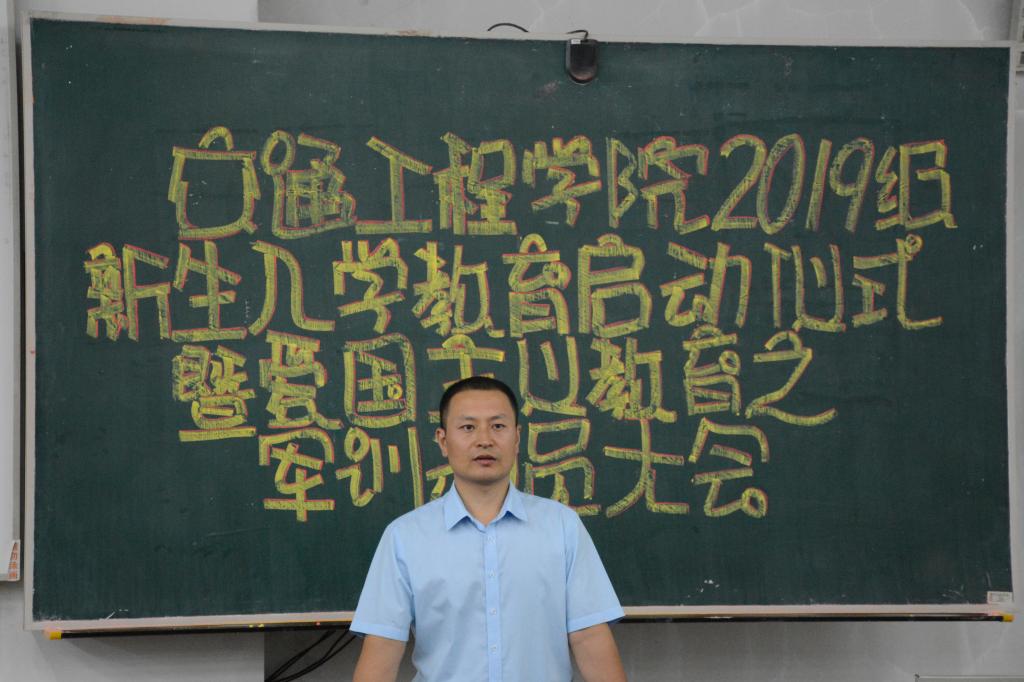 交通工程学院2019级
新生入学教育启动仪式
暨爱国主义教育之
军训动员大会